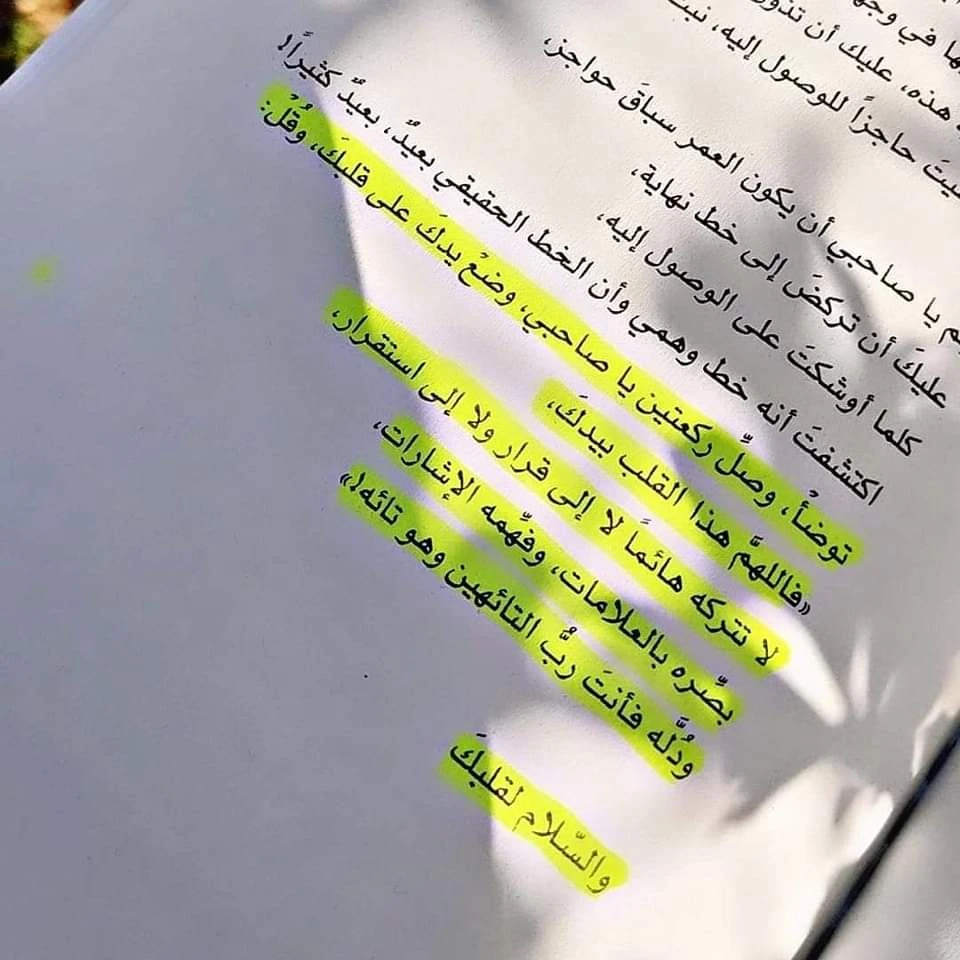 ها في وجه
هذه، عليك أن تذور
يتَ حاجزاً للوصول إليه، نبت
يا صاحبي أن يكون العمر سباقَ حواجز،
عليكَ أن تركضَ إلى خط نهاية،
كلما أوشكتَ على الوصول إليه،
اكتشفتَ أنه خط وهمي وأن الخط الحقيقي بعيدٌ، بعيدٌ كثيراً!
توضأْ، وصلِّ ركعتين يا صاحبي، وضعْ يدكَ على قلبكَ، وقُلْ:
«فاللهمَّ هذا القلب بيدكَ،
لا تتركه هائماً لا إلى قرار ولا إلى استقرار،
بصِّره بالعلامات، وفهِّمه الإشارات،
ودُلَّه فأنتَ ربُّ التائهين وهو تائه!»
والسّلام لقلبكَ